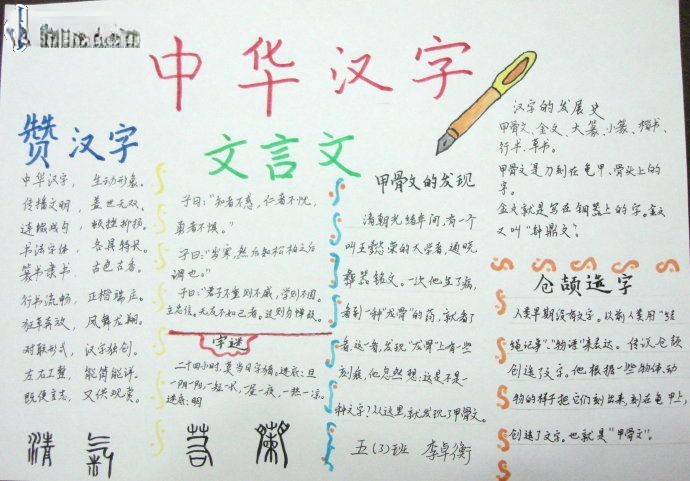 中华汉字
赞汉字
中华汉字，生动形象。
传播文明，盖世无双。
连缀成句，顿挫抑扬。
书法字体，各具特长。
篆书隶书，古色古香。
行书流畅，正楷端庄。
狂草奔放，凤舞龙翔。
对联形式，汉字独创。
左右工整，能简能详。
既便言志，又供观赏。
文言文
子曰："知者不惑，仁者不忧，
勇者不惧。"
子曰："岁寒，然后知松柏之后
凋也。"
子曰："君子不重则不威，学则不固。
主忠信。无友不如己者。过则勿惮改。
字谜
二十四小时，莫当日字猜。谜底：旦
一阴一阳，一短一长，一昼一夜，一热一凉。
谜底：明
甲骨文的发现
清朝光绪年间，有一个
叫王懿荣的大学者，通晓
彝器铭文。一次他生了病，
看到一种"龙骨"的药，就看了
看，这一看，发现"龙骨"上有些
刻痕，他忽然想：这是不是一
种文字？从这里，就发现了甲骨文。
五（3）班 李卓衡
汉字的发展史
甲骨文、金文、大篆、小篆、楷书、
行书、草书。
甲骨文是刀刻在龟甲、骨头上的
字。
金文就是写在铜器上的字。金文
又叫"钟鼎文"。
仓颉造字
人类早期没有文字。以前人类用"结
绳记事"、"物语"来表达。传说仓颉
创造了文字。他根据一些物体、动
物的样子把它们刻出来，刻在龟甲上，
创造了文字。也就是"甲骨文"。
清 氣